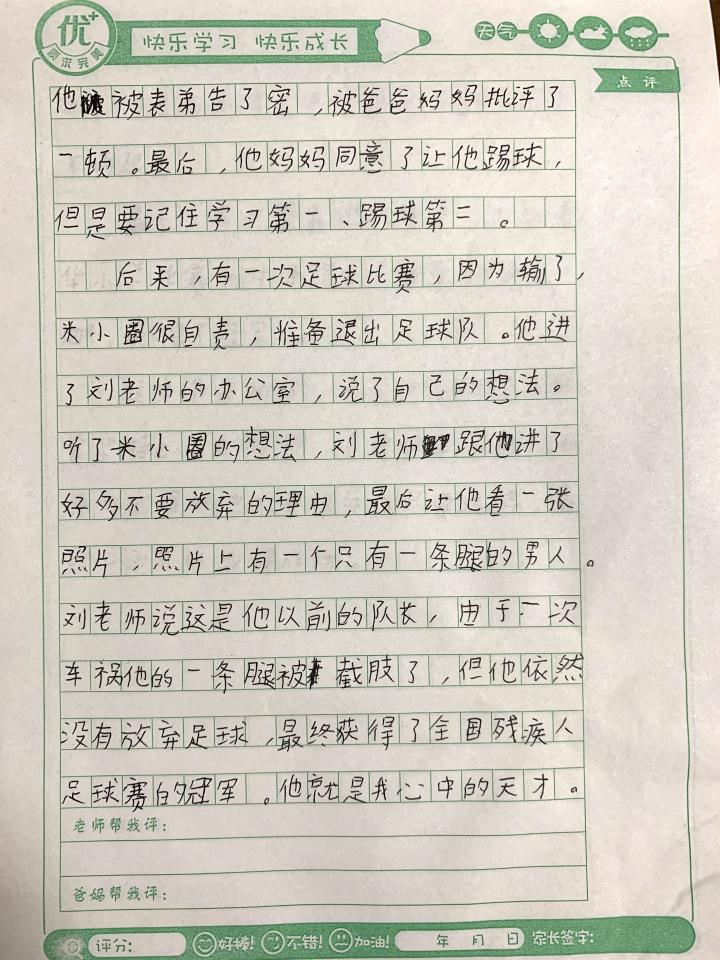 优+
质求完美
快乐学习 快乐成长
天气
点评
他被表弟告了密，被爸爸妈妈批评了
一顿。最后，他妈妈同意了让他踢球，
但是要记住学习第一、踢球第二。
后来，有一次足球比赛，因为输了，
米小圈很自责，准备退出足球队。他进
了刘老师的办公室，说了自己的想法。
听了米小圈的想法，刘老师跟他讲了
好多不要放弃的理由，最后让他看一张
照片，照片上有一个只有一条腿的男人。
刘老师说这是他以前的队长，由于一次
车祸他的一条腿被截肢了，但他依然
没有放弃足球，最终获得了全国残疾人
足球赛的冠军。他就是我心中的天才。
老师帮我评：
爸妈帮我评：
评分： 好棒！ 不错！ 加油！ 年 月 日 家长签字：